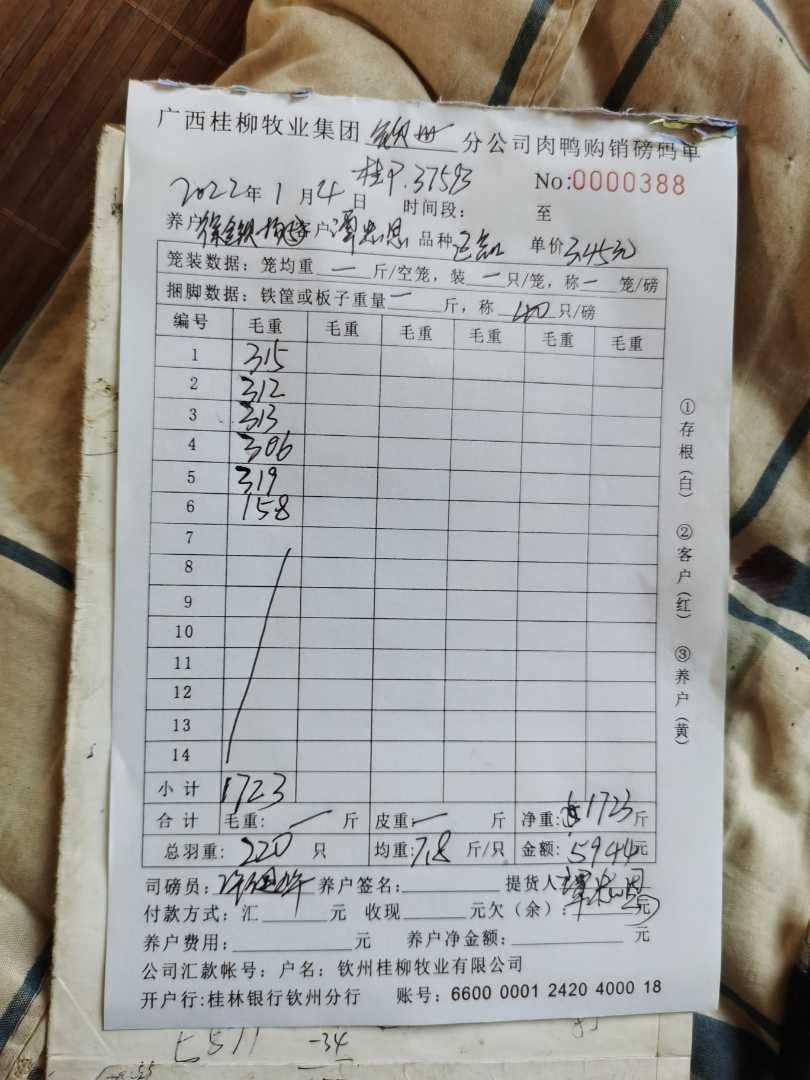 广西桂柳牧业集团 钦州 分公司肉鸭购销磅码单
桂P.37593
No:0000388
2022年1月4日 时间段: 至
养户 客户 谭忠恩 品种 单价 3.45元
笼装数据: 笼均重 一 斤/空笼, 装 一 只/笼, 称 一 笼/磅
捆脚数据: 铁筐或板子重量 一 斤, 称 40 只/磅
编号 毛重 毛重 毛重 毛重 毛重 毛重
1 315
2 312
3 313
4 306
5 319
6 158
7
8
9
10
11
12
13
14
小计 1723
合计 毛重: 一 斤 皮重: 一 斤 净重: 1723 斤
总羽重: 220 只 均重: 7.8 斤/只 金额: 5944元
司磅员: 养户签名: 提货人: 谭忠恩
付款方式: 汇 元 收现 元欠(余): 元
养户费用: 元 养户净金额: 元
公司汇款帐号: 户名: 钦州桂柳牧业有限公司
开户行:桂林银行钦州分行 账号: 6600 0001 2420 4000 18
①存根(白) ②客户(红) ③养户(黄)
-34